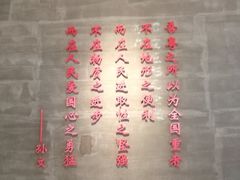 吾粤之所以为全国重者
不在地形之便利
而在人民进取性之坚强
不在物质之进步
而在人民爱国心之勇猛
——孙文